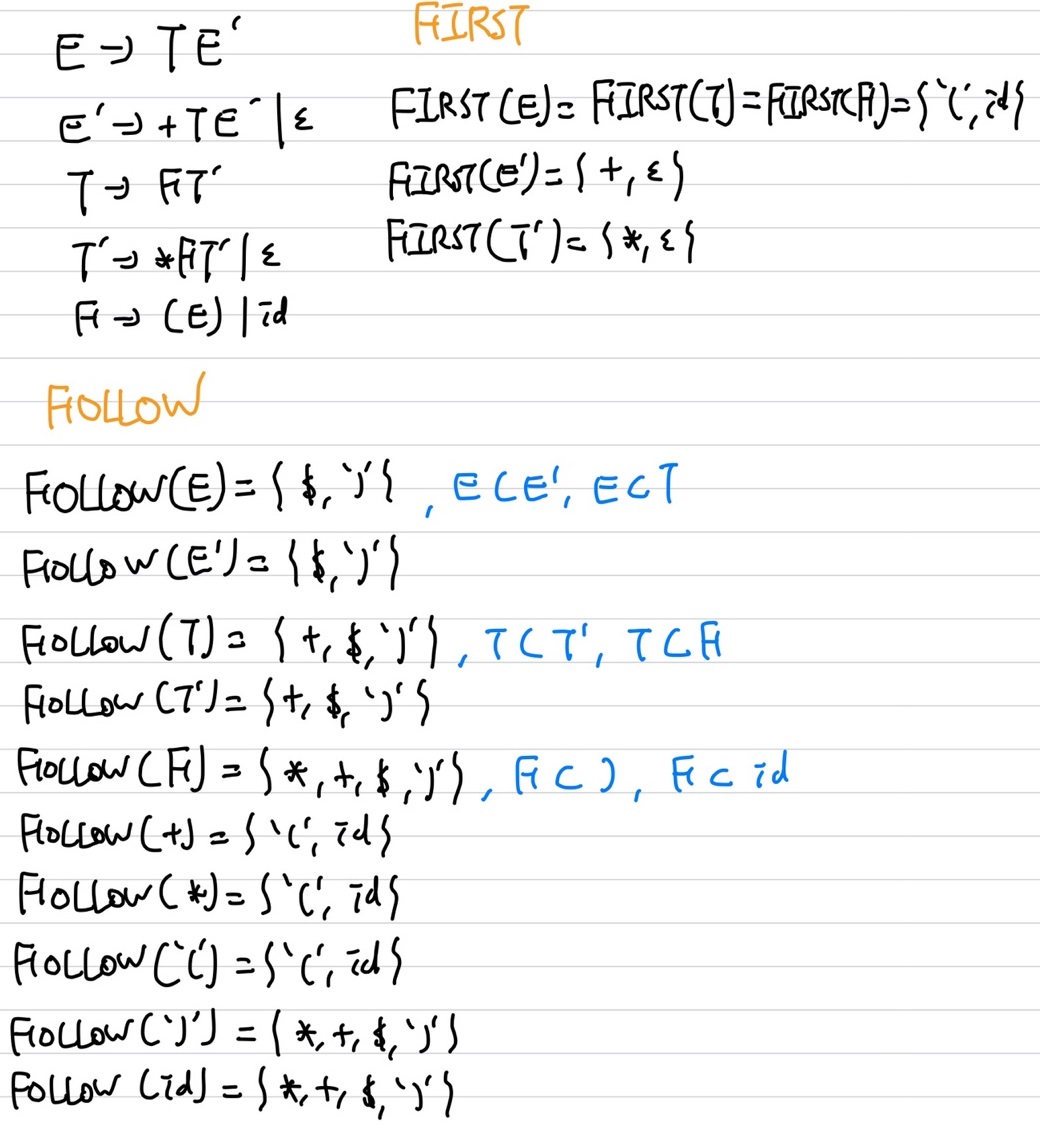 E → TE'
E' → +TE' | ε
T → FT'
T' → *FT' | ε
F → (E) | id
FIRST
FIRST(E) = FIRST(T) = FIRST(F) = {'(', id}
FIRST(E') = {+, ε}
FIRST(T') = {*, ε}
FOLLOW
FOLLOW(E) = {$, ')'} , E ⊂ E', E ⊂ T
FOLLOW(E') = {$, ')'}
FOLLOW(T) = {+, $, ')'} , T ⊂ T', T ⊂ F
FOLLOW(T') = {+, $, ')'}
FOLLOW(F) = {*, +, $, ')'} , F ⊂ ), F ⊂ id
FOLLOW(+) = {'(', id}
FOLLOW(*) = {'(', id}
FOLLOW('(') = {'(', id}
FOLLOW(')') = {*, +, $, ')'}
FOLLOW(id) = {*, +, $, ')'}